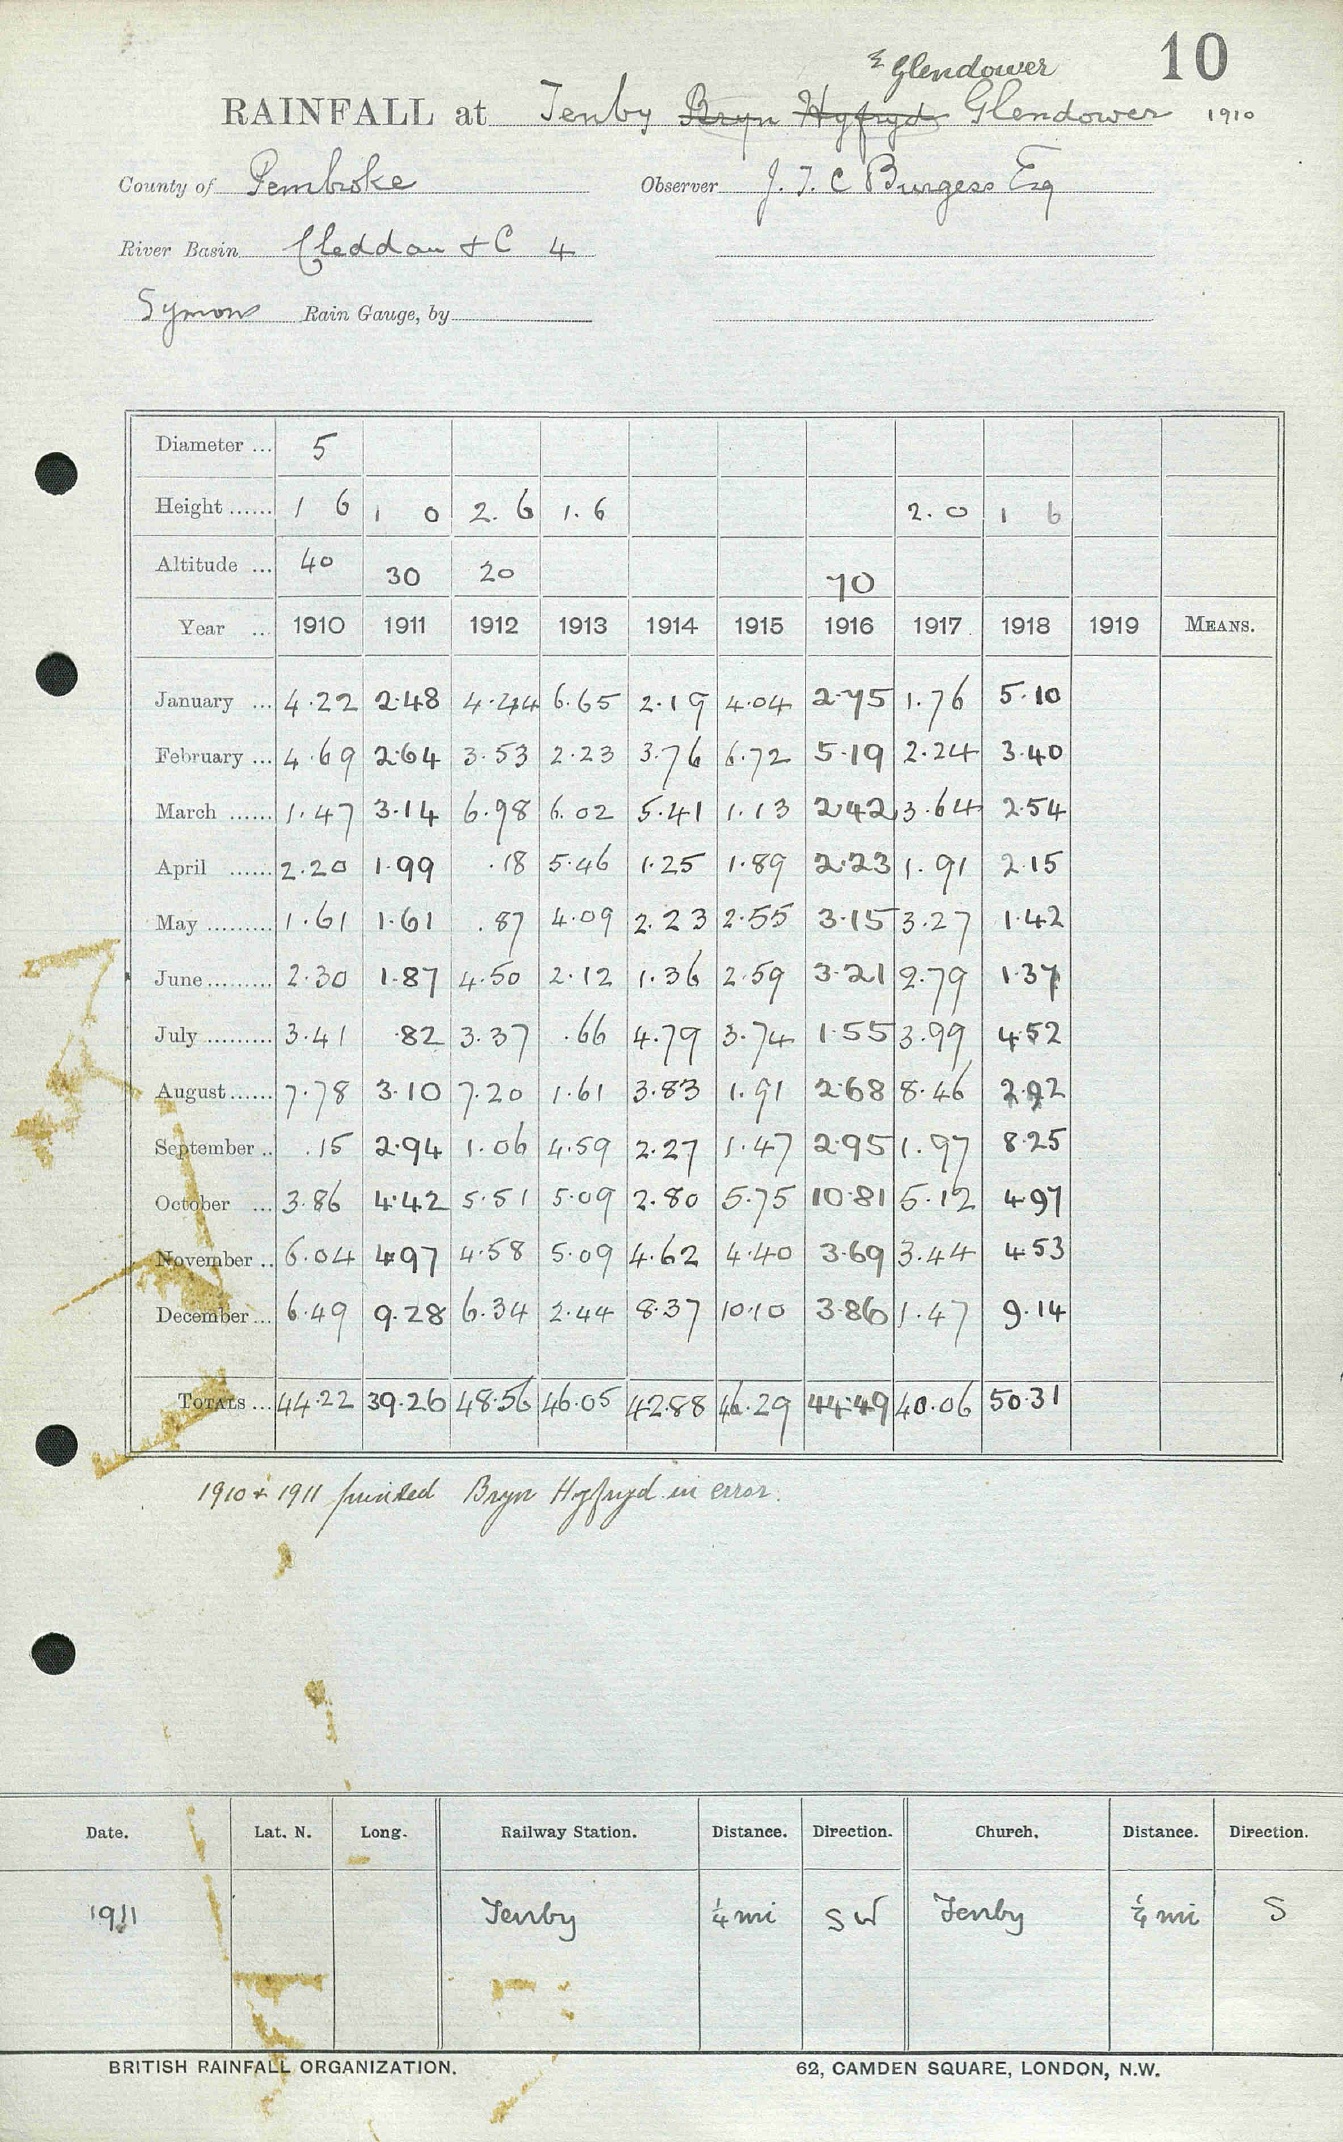 10
& Glendower
RAINFALL at Tenby Bryn Hyfryd Glendower 1910
County of Pembroke Observer J. T. C Burgess Esq
River Basin Cleddau & C 4
Symons Rain Gauge, by
Diameter ... 5
Height ...... 1 6 1 0 2.6 1.6 2.0 1 6
Altitude ... 40 30 20 70
Year ... 1910 1911 1912 1913 1914 1915 1916 1917 1918 1919 MEANS.
January ... 4.22 2.48 4.44 6.65 2.19 4.04 2.75 1.76 5.10
February ... 4.69 2.64 3.53 2.23 3.76 6.72 5.19 2.24 3.40
March ...... 1.47 3.14 6.98 6.02 5.41 1.13 2.42 3.64 2.54
April ...... 2.20 1.99 .18 5.46 1.25 1.89 2.23 1.91 2.15
May ......... 1.61 1.61 .87 4.09 2.23 2.55 3.15 3.27 1.42
June ......... 2.30 1.87 4.50 2.12 1.36 2.59 3.21 2.79 1.37
July ......... 3.41 .82 3.37 .66 4.79 3.74 1.55 3.99 4.52
August ...... 7.78 3.10 7.20 1.61 3.83 1.91 2.68 8.46 2.92
September .. .15 2.94 1.06 4.59 2.27 1.47 2.95 1.97 8.25
October ... 3.86 4.42 5.51 5.09 2.80 5.75 10.81 5.12 4.97
November .. 6.04 4.97 4.58 5.09 4.62 4.40 3.69 3.44 4.53
December ... 6.49 9.28 6.34 2.44 8.37 10.10 3.86 1.47 9.14
TOTALS ... 44.22 39.26 48.56 46.05 42.88 46.29 44.49 40.06 50.31
1910 & 1911 printed Bryn Hyfryd in error.
Date. Lat. N. Long. Railway Station. Distance. Direction. Church. Distance. Direction.
1911 Tenby ¼ mi SW Tenby ¼ mi S
BRITISH RAINFALL ORGANIZATION. 62, CAMDEN SQUARE, LONDON, N.W.